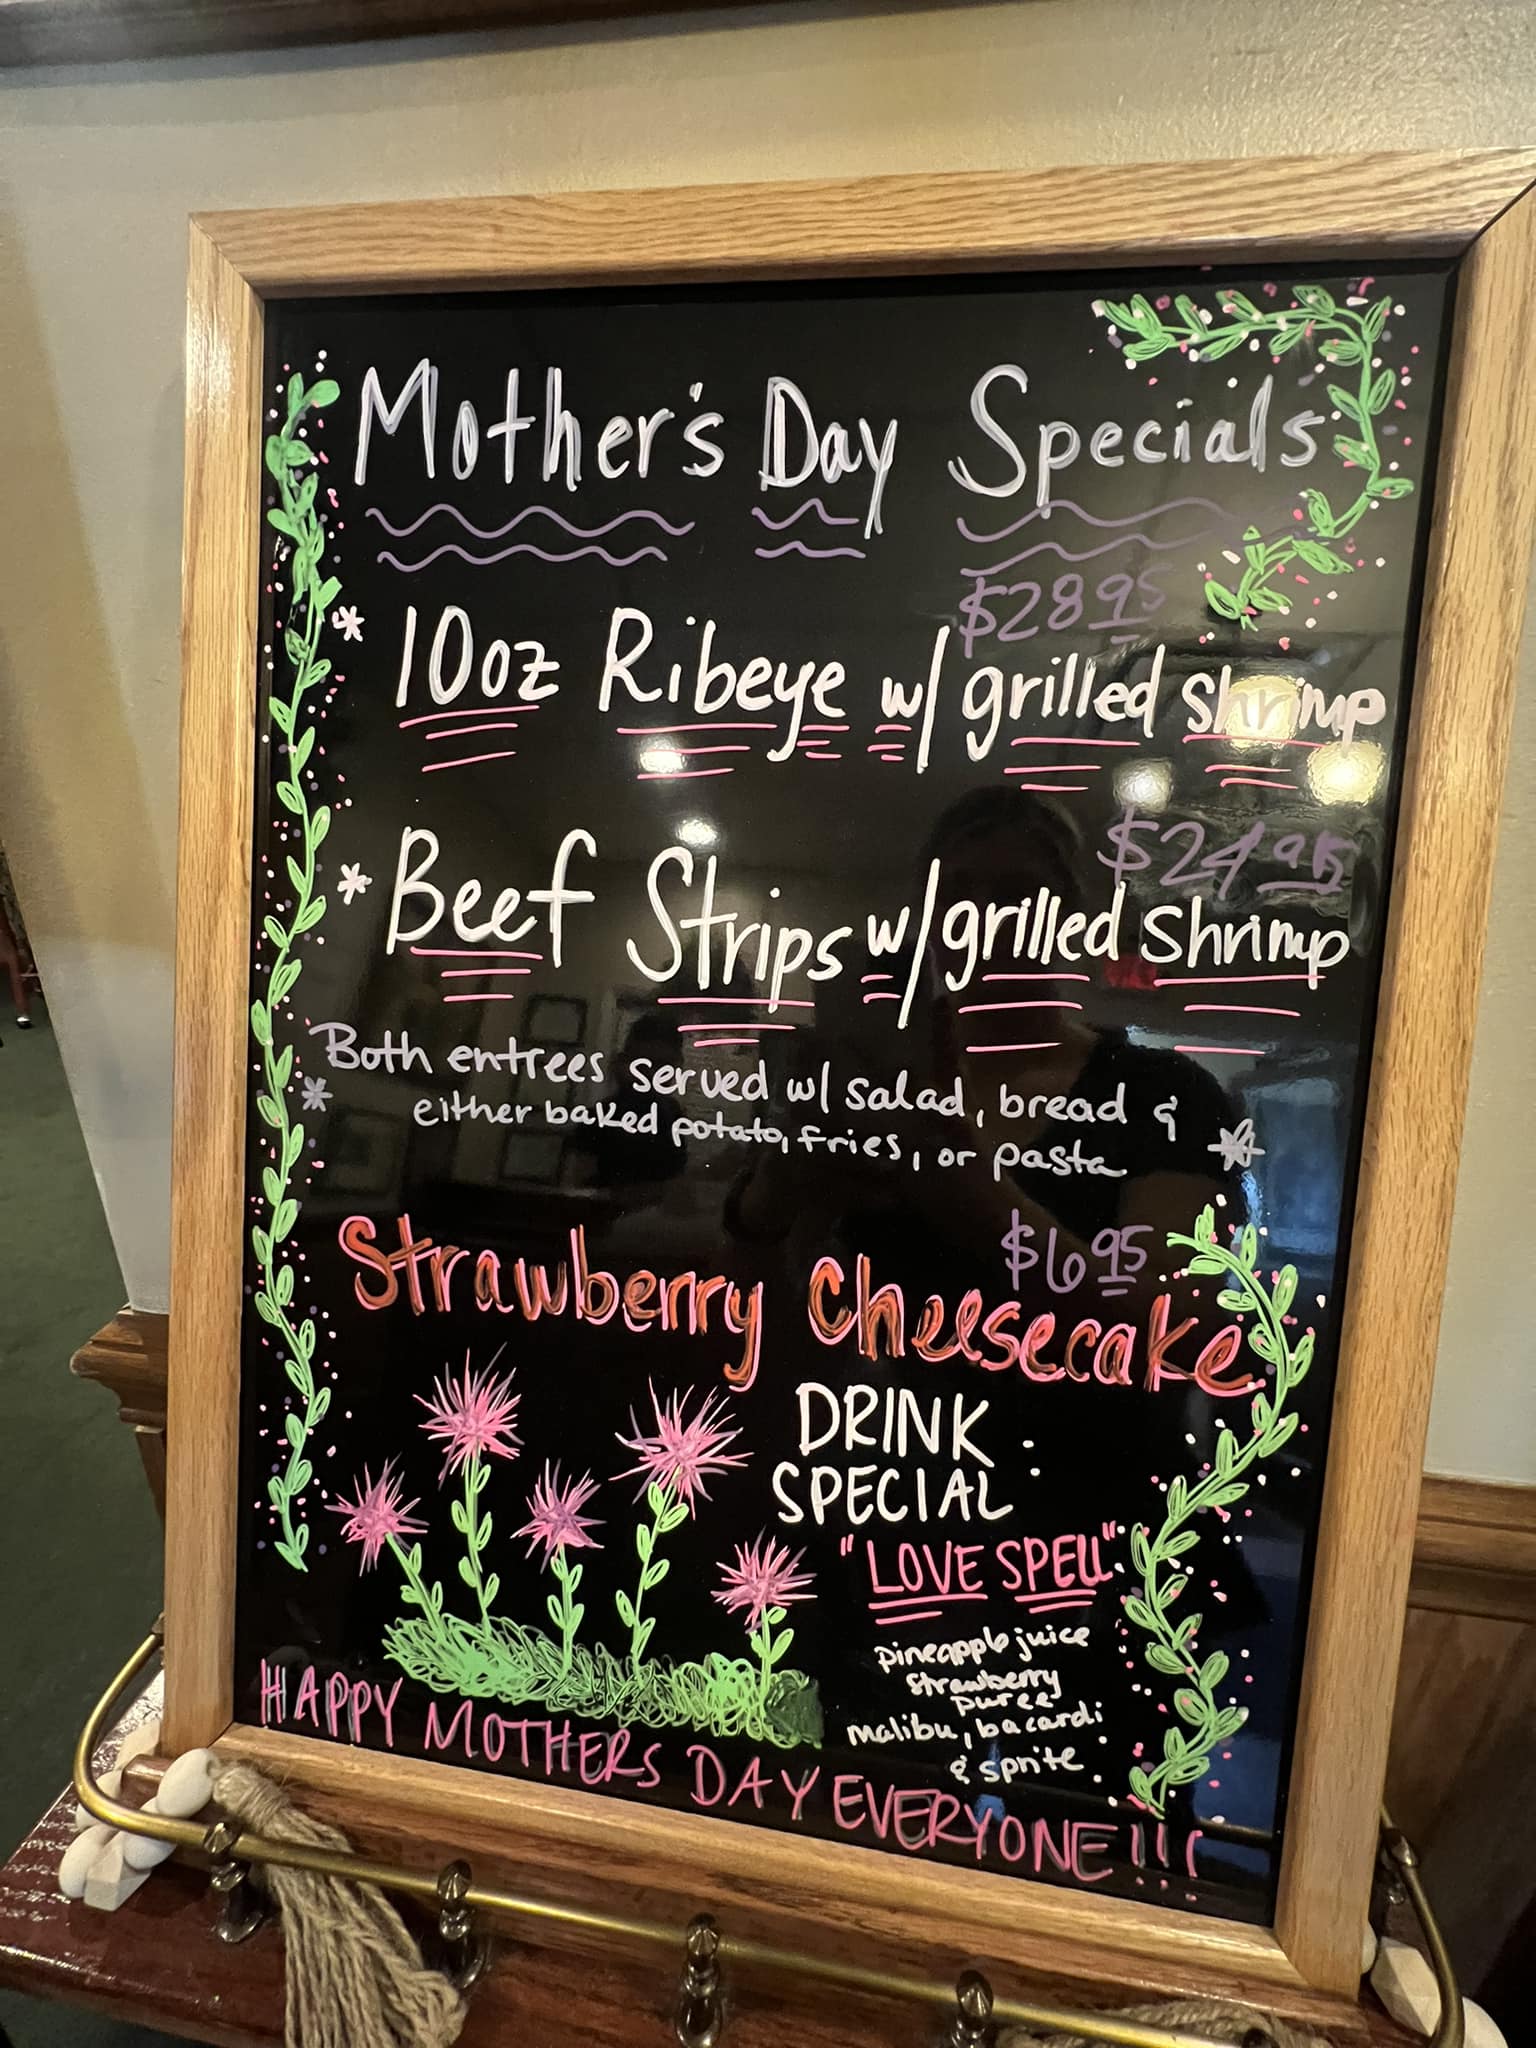 Mother's Day Specials
$28.95
* 10oz Ribeye w/ grilled shrimp
$24.95
* Beef Strips w/ grilled shrimp
* Both entrees served w/ salad, bread &
either baked potato, fries, or pasta *
$6.95
Strawberry Cheesecake
DRINK
SPECIAL :
"LOVE SPELL"
pineapple juice
strawberry
puree
malibu, bacardi
& sprite
HAPPY MOTHERS DAY EVERYONE!!!